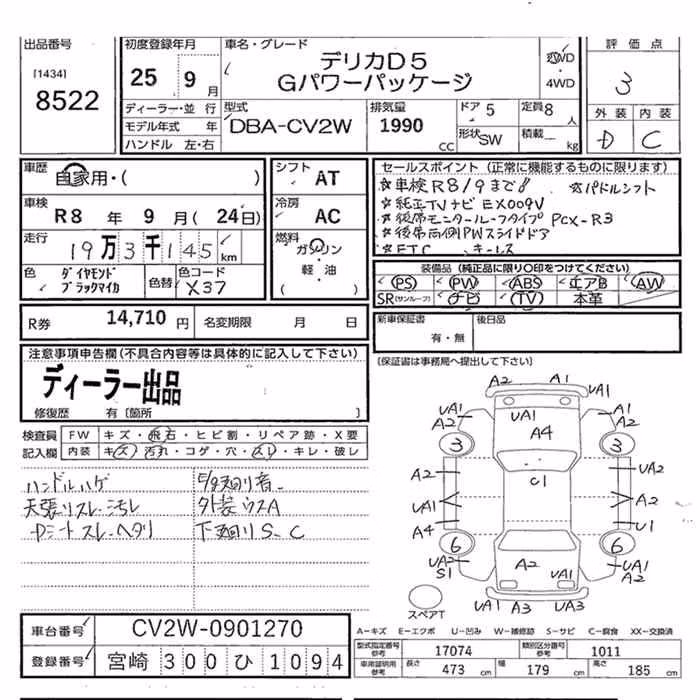 出品番号
[1434]
8522
初度登録年月
25 9 月
車名・グレード
デリカD5
Gパワーパッケージ
2WD
・
4WD
評価点
3
外装 内装
D C
ディーラー・並 行
モデル年式 年
ハンドル 左・右
型式
DBA-CV2W
排気量
1990
cc
ドア 5
形状 SW
定員 8 人
積載 kg
車歴
自家用・( )
車検
R8 年 9 月 ( 24日)
走行
19万3千145 km
色
ダイヤモンド
ブラックマイカ
色替
色コード
X37
シフト
AT
冷房
AC
燃料
ガソリン
軽・油
( )
セールスポイント (正常に機能するものに限ります)
☆車検R8/9まで! ☆パドルシフト
☆純正TVナビ EX009V
☆後席モニタールーフタイプ PCX-R3
☆後席両側PWスライドドア
☆ETC キーレス
装備品 (純正品に限り〇印をつけてください)
PS PW ABS エアB AW
SR(サンルーフ) ナビ TV 本革
R券 14,710 円 名変期限 月 日
新車保証書
有・無
後日品
注意事項申告欄(不具合内容等は具体的に記入して下さい)
ディーラー出品
修復歴 有〔箇所
〔保証書は事務局へ提出して下さい〕
検査員
記入欄
FW キズ・飛石・ヒビ割・リペア跡・X要
内装 キズ・汚れ・コゲ・穴・スレ・キレ・破レ
ハンドルハゲ
天張リスレ、汚レ
シートスレ、ヘタリ
外装ウスA
下廻リS、C
A2 A1 UA1
UA1
A2
UA1
A4
UA1
A2
3 3
C1
A2 UA2
UA1 A2
A4 U1
6 6
UA2
S1
A2
UA1
UA1
A2
スペアT
UA1 A3 UA3
車台番号 CV2W-0901270
登録番号 宮崎 300 ひ 1094
A-キズ E-エクボ U-凹み W-補修跡 S-サビ C-腐食 XX-交換済
型式指定番号
参考
17074
類別区分番号
参考
1011
車庫証明用
参考
長さ 473 cm 幅 179 cm 高さ 185 cm